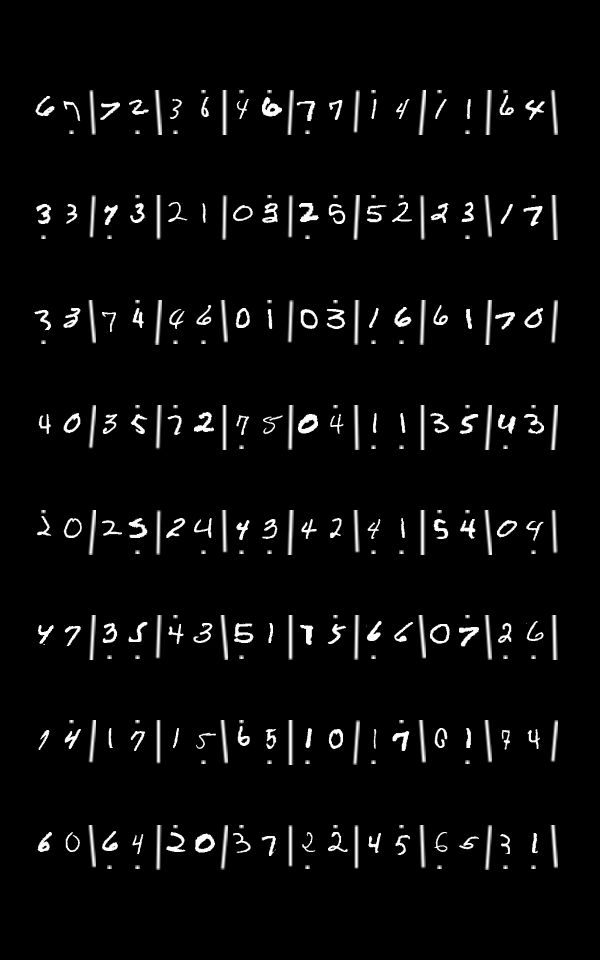 6 7 | 7 2 | 3 6 | 4 6 | 7 7 | 1 4 | 1 1 | 6 4 |
3 3 | 7 3 | 2 1 | 0 3 | 2 5 | 5 2 | 2 3 | 1 7 |
3 3 | 7 4 | 4 6 | 0 1 | 0 3 | 1 6 | 6 1 | 7 0 |
4 0 | 3 5 | 7 2 | 7 5 | 0 4 | 1 1 | 3 5 | 4 3 |
2 0 | 2 5 | 2 4 | 4 3 | 4 2 | 4 1 | 5 4 | 0 4 |
4 7 | 3 5 | 4 3 | 5 1 | 7 5 | 6 6 | 0 7 | 2 6 |
1 4 | 1 7 | 1 5 | 6 5 | 1 0 | 1 7 | 0 1 | 7 4 |
6 0 | 6 4 | 2 0 | 3 7 | 2 2 | 4 5 | 6 5 | 3 1 |